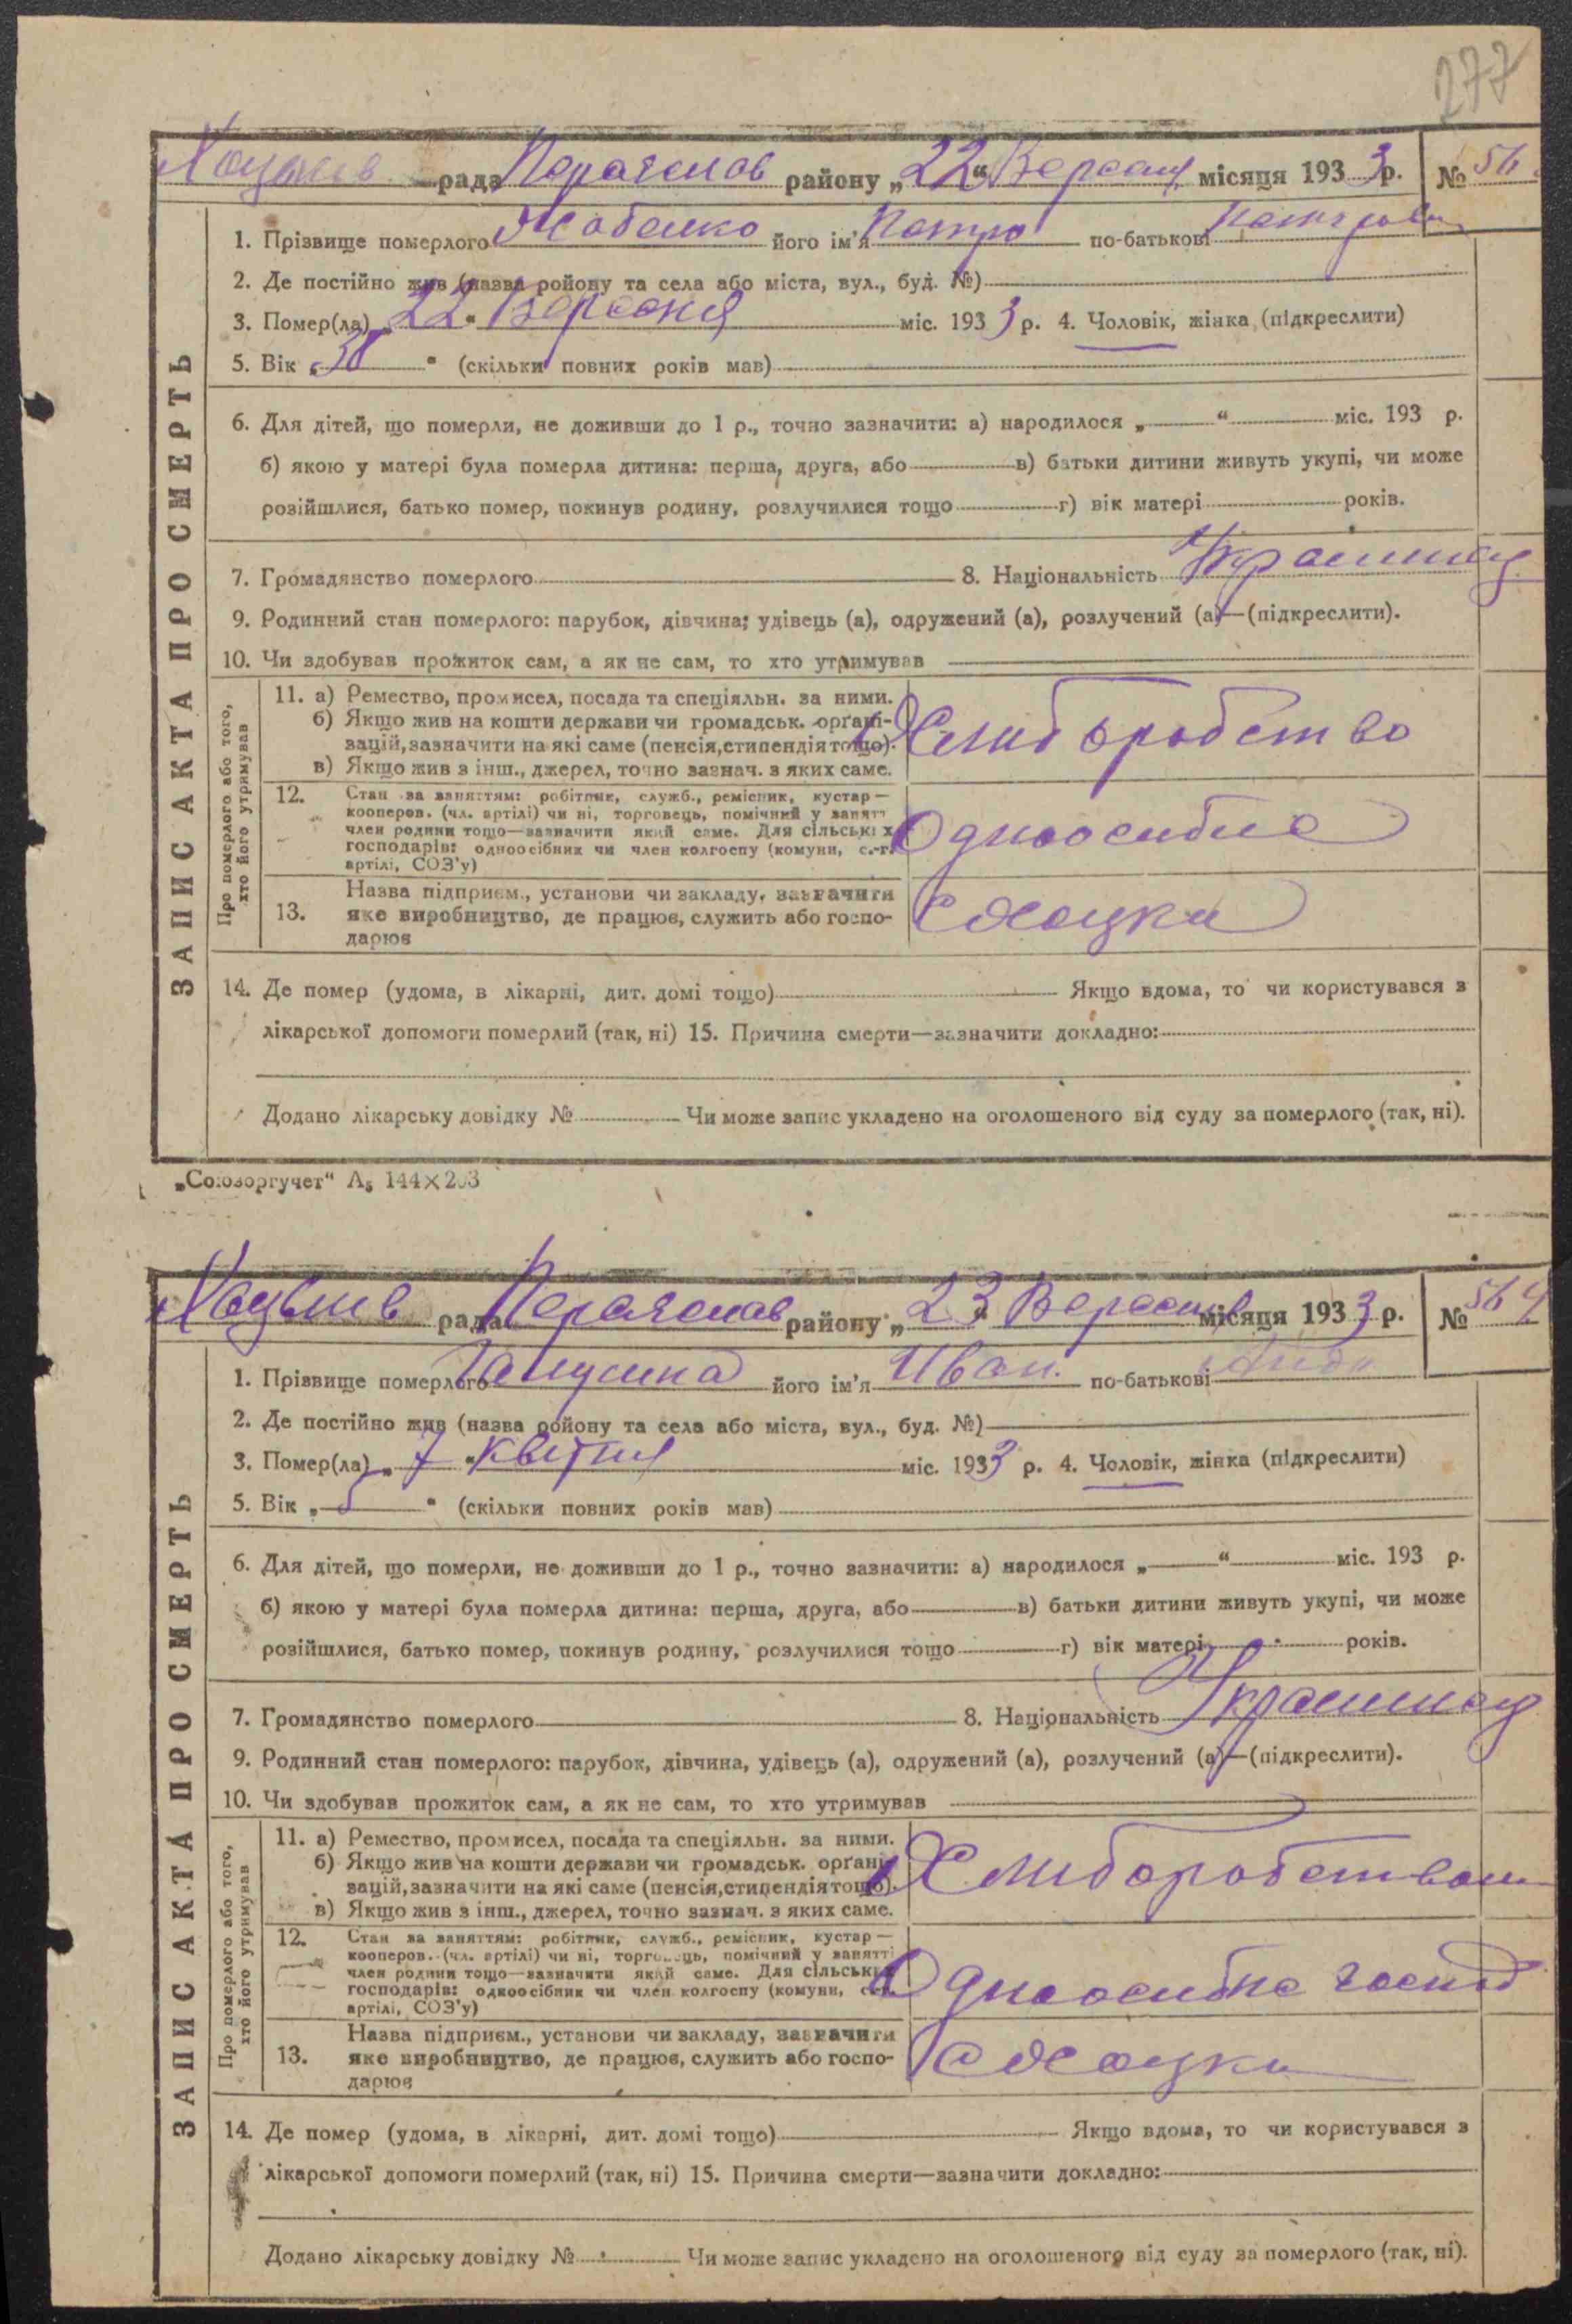 277
рада района „22“ Вересня місяця 1933 р. №
ЗАПИС АКТА ПРО СМЕРТЬ
1. Прізвище померлого його ім'я Петро по-батькові
2. Де постійно жив (назва ройону та села або міста, вул., буд. №)
3. Помер(ла) „22“ Вересня міс. 1933 р. 4. Чоловік, жінка (підкреслити)
5. Вік „ “ (скільки повних років мав)
6. Для дітей, що померли, не доживши до 1 р., точно зазначити: а) народилося „ “ міс. 193 р.
б) якою у матері була померла дитина: перша, друга, або в) батьки дитини живуть укупі, чи може
розійшлися, батько помер, покинув родину, розлучилися тощо г) вік матері років.
7. Громадянство померлого 8. Національність
9. Родинний стан померлого: парубок, дівчина; удівець (а), одружений (а), розлучений (а)—(підкреслити).
10. Чи здобував прожиток сам, а як не сам, то хто утримував
Про померлого або того, хто його утримував
11. а) Ремество, промисел, посада та спеціяльн. за ними.
б) Якщо жив на кошти держави чи громадськ. орґані-
зацій, зазначити на які саме (пенсія, стипендія тощо).
в) Якщо жив з інш., джерел, точно зазнач. з яких саме.
Хлиборобство
12. Стан за заняттям: робітник, служб., ремісник, кустар—
кооперов. (чл. артілі) чи ні, торговець, помічний у занятт
член родини тощо—зазначити який саме. Для сільських
господарів: одноосібник чи член колгоспу (комуни, с.-г.
артілі, СОЗ'у)
Одноосибне
13. Назва підприєм., установи чи закладу, зазначити
яке виробництво, де працює, служить або госпо-
дарює
С Хоцки
14. Де помер (удома, в лікарні, дит. домі тощо) Якщо вдома, то чи користувався з
лікарської допомоги померлий (так, ні) 15. Причина смерти—зазначити докладно:
Додано лікарську довідку № Чи може запис укладено на оголошеного від суду за померлого (так, ні).
„Союзоргучет“ А₅ 144×203
рада району „23“ Вересня місяця 1933 р. № 564
ЗАПИС АКТА ПРО СМЕРТЬ
1. Прізвище померлого його ім'я Иван. по-батькові
2. Де постійно жив (назва ройону та села або міста, вул., буд. №)
3. Помер(ла) „7“ Квітня міс. 1933 р. 4. Чоловік, жінка (підкреслити)
5. Вік „5“ (скільки повних років мав)
6. Для дітей, що померли, не доживши до 1 р., точно зазначити: а) народилося „ “ міс. 193 р.
б) якою у матері була померла дитина: перша, друга, або в) батьки дитини живуть укупі, чи може
розійшлися, батько помер, покинув родину, розлучилися тощо г) вік матері років.
7. Громадянство померлого 8. Національність
9. Родинний стан померлого: парубок, дівчина, удівець (а), одружений (а), розлучений (а)—(підкреслити).
10. Чи здобував прожиток сам, а як не сам, то хто утримував
Про померлого або того, хто його утримував
11. а) Ремество, промисел, посада та спеціяльн. за ними.
б) Якщо жив на кошти держави чи громадськ. орґані-
зацій, зазначити на які саме (пенсія, стипендія тощо).
в) Якщо жив з інш., джерел, точно зазнач. з яких саме.
Хлиборобством
12. Стан за заняттям: робітник, служб., ремісник, кустар—
кооперов. (чл. артілі) чи ні, торговець, помічний у занятті
член родини тощо—зазначити який саме. Для сільських
господарів: одноосібник чи член колгоспу (комуни, с.-г.
артілі, СОЗ'у)
Одноосибне господ
13. Назва підприєм., установи чи закладу, зазначити
яке виробництво, де працює, служить або госпо-
дарює
С Хоцки
14. Де помер (удома, в лікарні, дит. домі тощо) Якщо вдома, то чи користувався з
лікарської допомоги померлий (так, ні) 15. Причина смерти—зазначити докладно:
Додано лікарську довідку № Чи може запис укладено на оголошеного від суду за померлого (так, ні).